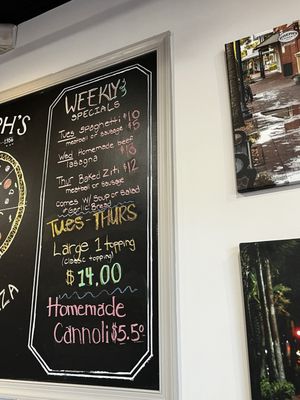 PH'S
WEEKLY
SPECIALS
Tues Spaghetti $10
meatball or sausage $5
Wed Homemade beef
Lasagna $16
Thur Baked Ziti $12
meatball or sausage
comes w/ Soup or Salad
& Garlic Bread
Tues - THURS
Large 1 topping
(classic topping)
$14.00
Homemade
Cannoli $5.50